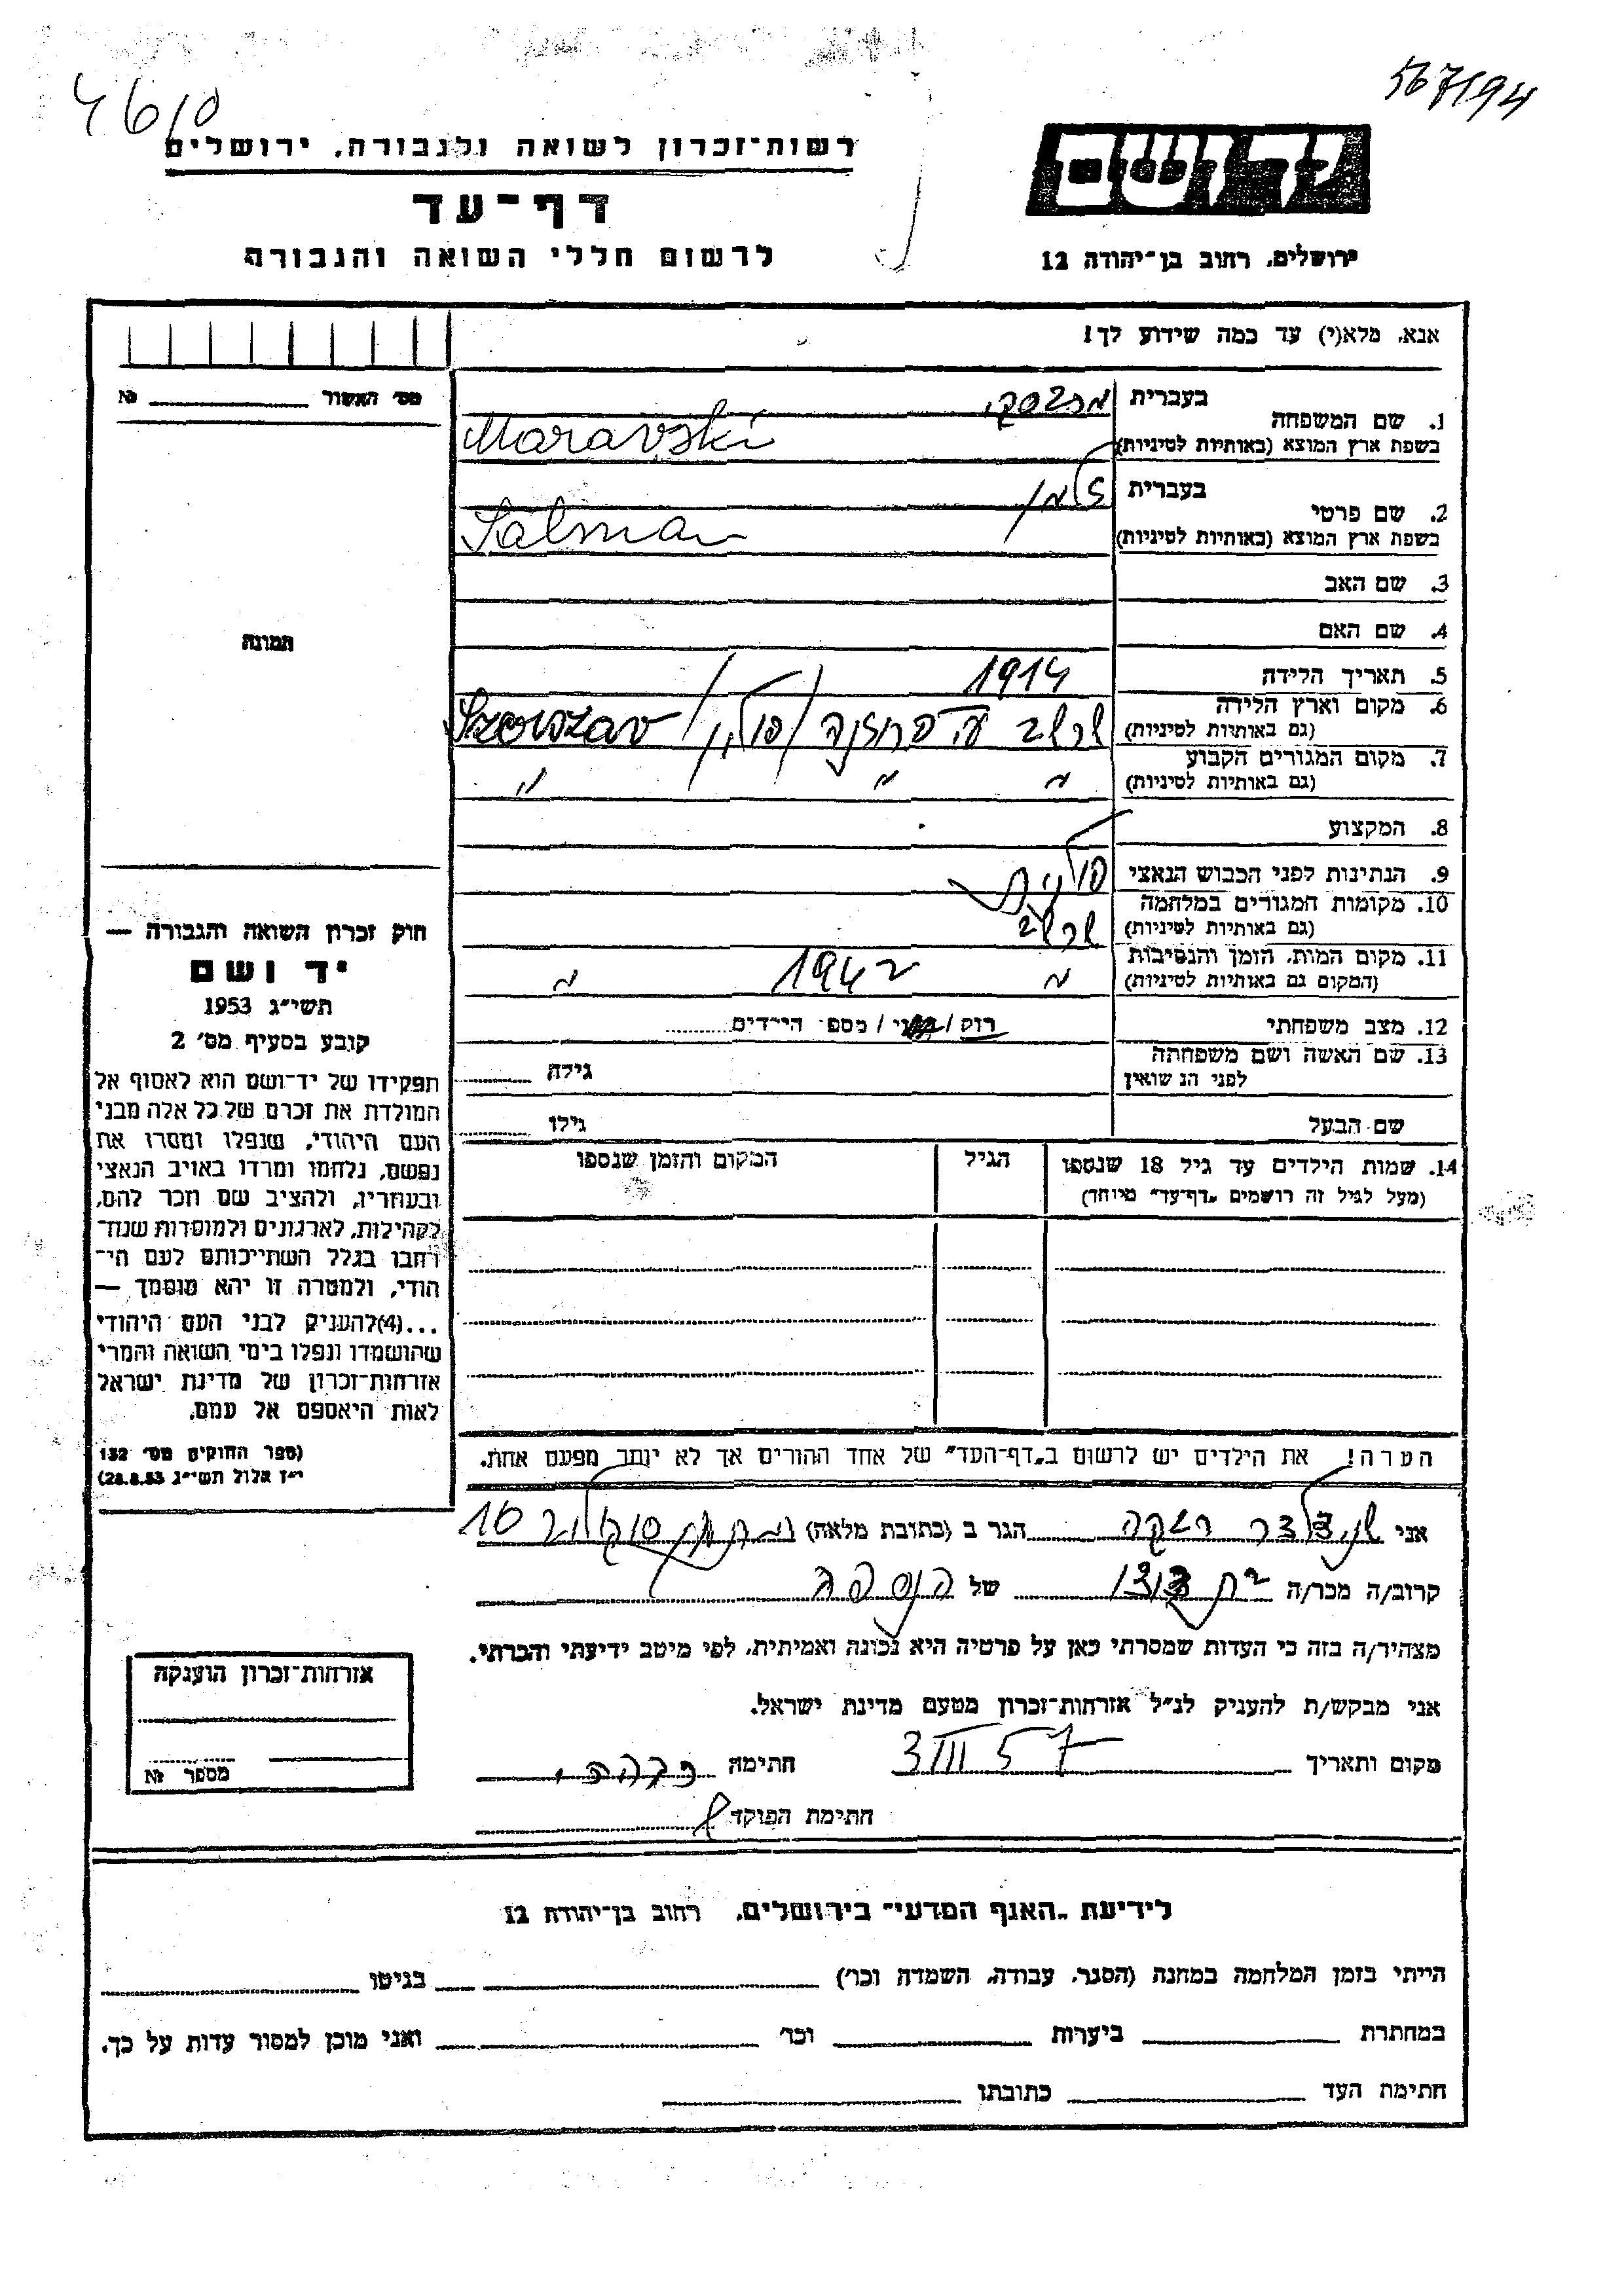 4610
567194
רשות־זכרון לשואה ולגבורה, ירושלים
יד ושם
דף־עד
לרשום חללי השואה והגבורה
ירושלים, רחוב בן־יהודה 12
אנא, מלא(י) עד כמה שידוע לך!
מס׳ האשור № 
1. שם המשפחה
בעברית
בשפת ארץ המוצא (באותיות לטיניות)
Maravski
2. שם פרטי
בעברית זלמן
בשפת ארץ המוצא (באותיות לטיניות)
Salman
3. שם האב
4. שם האם
תמונה
5. תאריך הלידה 1914
6. מקום וארץ הלידה
(גם באותיות לטיניות)
שרשב ע"י פרוז'נה /פולין/ Szerszav
7. מקום המגורים הקבוע
(גם באותיות לטיניות)
" " "
8. המקצוע
9. הנתינות לפני הכבוש הנאצי פולנית
10. מקומות המגורים במלחמה
(גם באותיות לטיניות)
שרשב
11. מקום המות, הזמן והנסיבות
(המקום גם באותיות לטיניות)
" 1942 "
12. מצב משפחתי רוק / נשוי / מספר הילדים
13. שם האשה ושם משפחתה
לפני הנשואין
גילה
שם הבעל גילו
14. שמות הילדים עד גיל 18 שנספו
(מעל לגיל זה רושמים „דף־עד” מיוחד)
הגיל
המקום והזמן שנספו
חוק זכרון השואה והגבורה —
יד ושם
תשי״ג 1953
קובע בסעיף מס׳ 2
תפקידו של יד־ושם הוא לאסוף אל
המולדת את זכרם של כל אלה מבני
העם היהודי, שנפלו ומסרו את
נפשם, נלחמו ומרדו באויב הנאצי
ובעוזריו, ולהציב שם וזכר להם,
לקהילות, לארגונים ולמוסדות שנח־
רבו בגלל השתייכותם לעם הי־
הודי, ולמטרה זו יהא מוסמך —
...(4) להעניק לבני העם היהודי
שהושמדו ונפלו בימי השואה והמרי
אזרחות־זכרון של מדינת ישראל
לאות היאספם אל עמם.
(ספר החוקים מס׳ 132
י״ז אלול תשי״ג 28.8.53)
הערה! את הילדים יש לרשום ב„דף־העד” של אחד ההורים אך לא יותר מפעם אחת.
אני רבקה הגר ב (כתובת מלאה) סוקולוב 10
קרוב/ה מכר/ה בת דודו של הנספה
מצהיר/ה בזה כי העדות שמסרתי כאן על פרטיה היא נכונה ואמיתית, לפי מיטב ידיעתי והכרתי.
אני מבקש/ת להעניק לנ״ל אזרחות־זכרון מטעם מדינת ישראל.
מקום ותאריך 3 III 57 חתימה
חתימת הפוקד
אזרחות־זכרון הוענקה
מספר №
לידיעת „האגף המדעי” בירושלים, רחוב בן־יהודה 12
הייתי בזמן המלחמה במחנה (הסגר, עבודה, השמדה וכו׳) בגיטו
במחתרת ביערות וכו׳ ואני מוכן למסור עדות על כך.
חתימת העד כתובתו